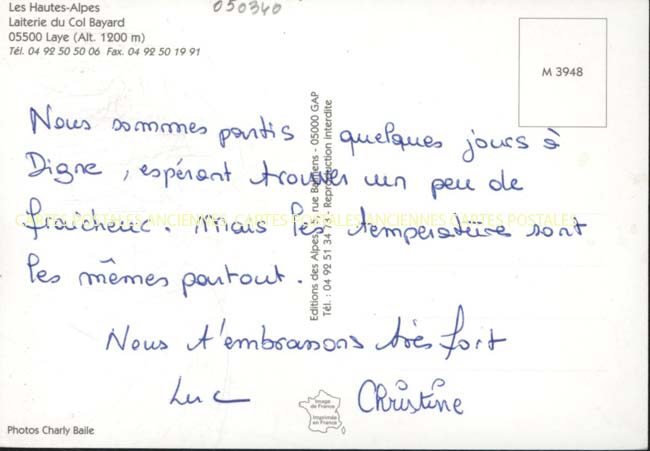 Les Hautes-Alpes
Laiterie du Col Bayard
05500 Laye (Alt. 1200 m)
Tél. 04 92 50 50 06 Fax. 04 92 50 19 91
050340
M 3948
Nous sommes partis quelques jours à
Digne, espérant trouver un peu de
fraicheur. Mais les températures sont
les mêmes partout.
Nous t'embrassons très fort
Luc Christine
CARTES POSTALES ANCIENNES CARTES POSTALES ANCIENNES CARTES POSTALES
Editions des Alpes, rue - 05000 GAP
Tél. : 04 92 51 34 Reproduction interdite
Image
de France
Imprimée
en France
Photos Charly Baile